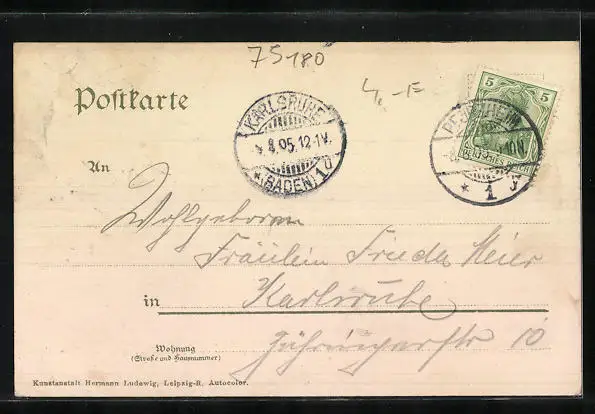 75180
4,-F
Postkarte
KARLSRUHE
8.05.12-1V.
*(BADEN)1d
PFORZHEIM
* 1 j
5 5
DEUTSCHES REICH
An
Wohlgeboren
Fräulein Frieda Meier
in Karlsruhe
Zähringerstr 10
Wohnung
(Straße und Hausnummer)
Kunstanstalt Hermann Ludewig, Leipzig-R. Autocolor.